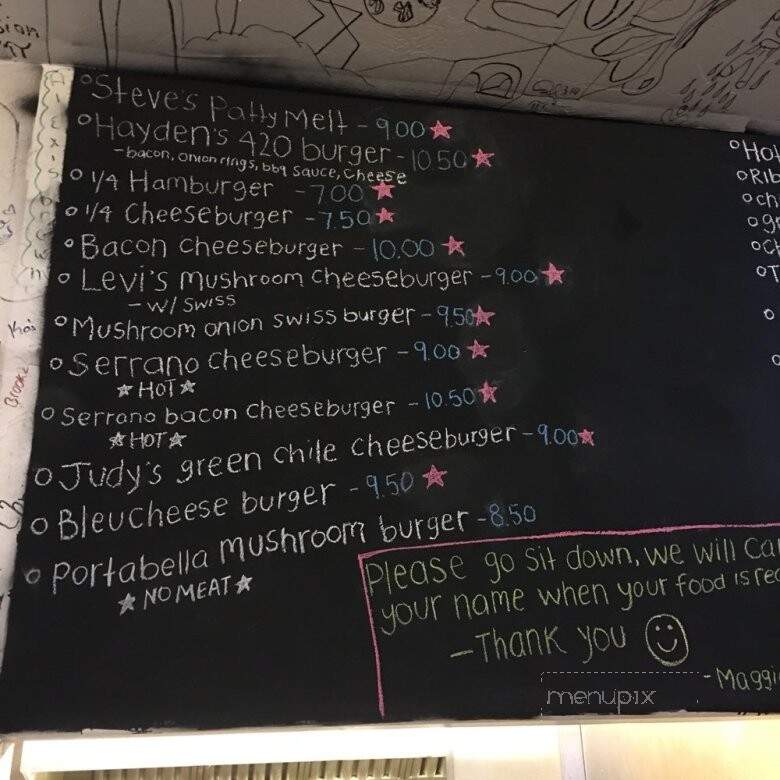 sion
°Steve's Patty Melt - 9.00 ★
°Hayden's 420 burger - 10.50 ★
- bacon, onion rings, bbq sauce, cheese
° 1/4 Hamburger - 7.00 ★
° 1/4 Cheeseburger - 7.50 ★
° Bacon cheeseburger - 10.00 ★
° Levi's mushroom cheeseburger - 9.00 ★
- w/ Swiss
° Mushroom onion swiss burger - 9.50 ★
° Serrano cheeseburger - 9.00 ★
★ HOT ★
° Serrano bacon cheeseburger - 10.50 ★
★ HOT ★
° Judy's green chile cheeseburger - 9.00 ★
° Bleucheese burger - 9.50 ★
° Portabella mushroom burger - 8.50
★ NO MEAT ★
° Hot
° Rib
° Ch
Please go sit down, we will Ca
your name when your food is rea
- Thank you ☺
- Maggi
menupix
Brooke